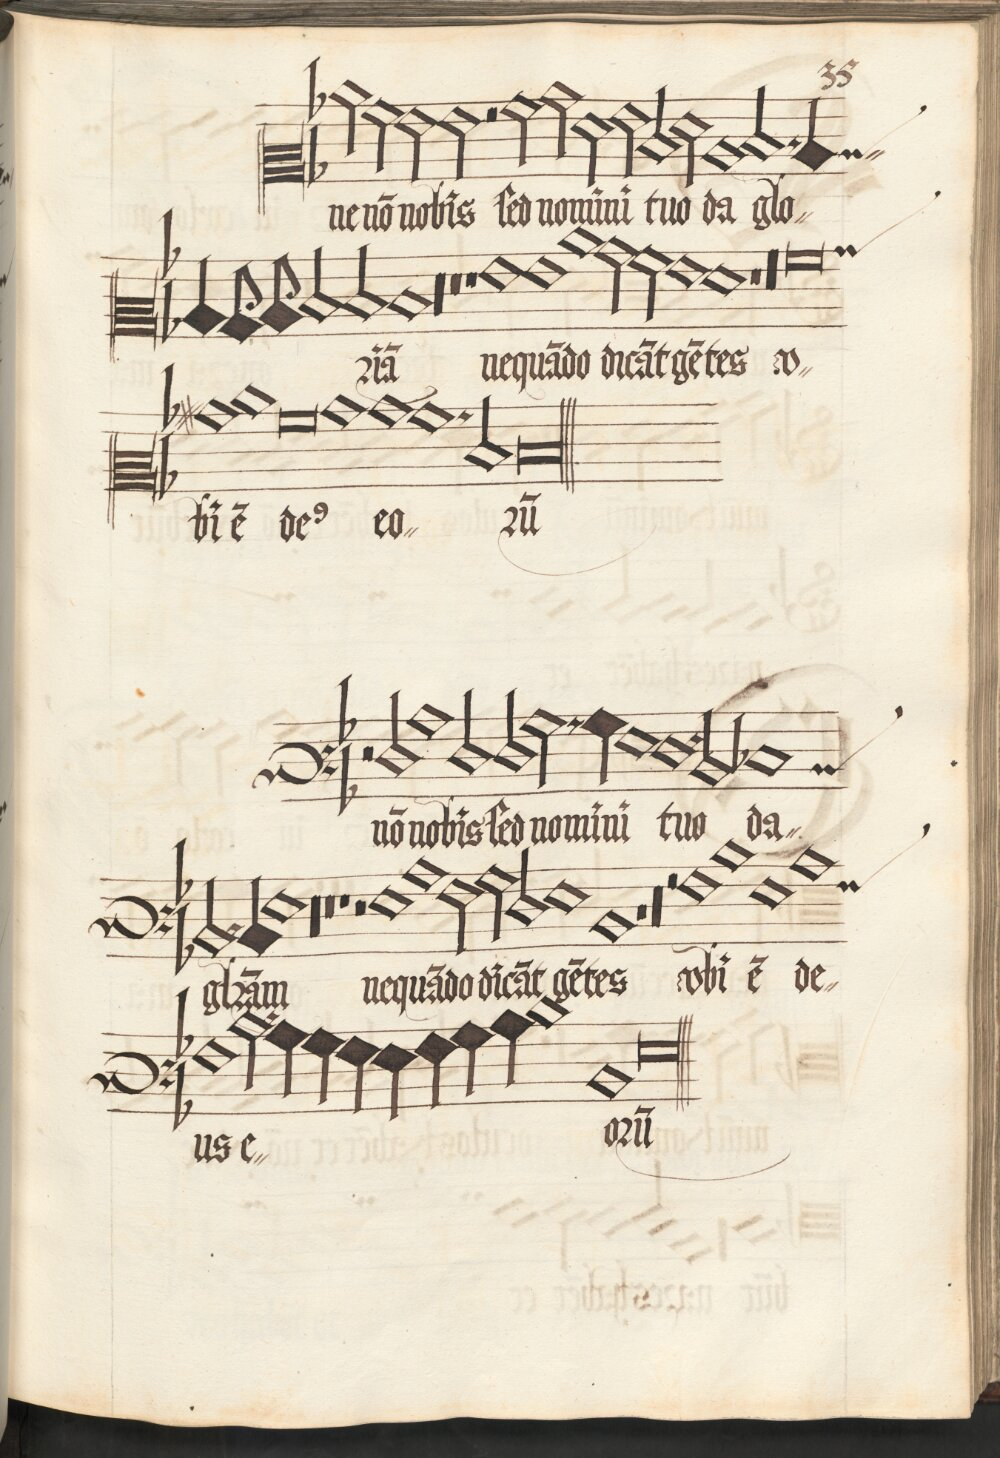 35
ne nō nobīs sed nomini tuo da glo„
riā nequādo dicāt gētes v„
bi ē deꝰ eo„ rū
nō nobīs sed nomini tuo da„
glīam nequādo dicāt gētes vbi ē de„
us e„ orū